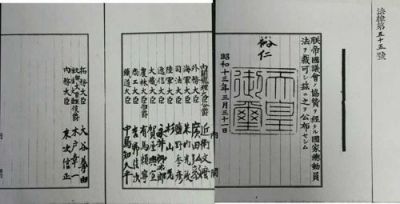 法律第五十五號
朕帝國議會ノ協賛ヲ經タル國家總動員
法ヲ裁可シ茲ニ之ヲ公布セシム
裕仁
天皇御璽
昭和十三年三月三十一日
内閣
内閣總理大臣公爵 近衞文麿
外務大臣 廣田弘毅
海軍大臣 米内光政
司法大臣 鹽野季彦
陸軍大臣 杉山元
遞信大臣 永井柳太郎
大藏大臣 賀屋興宣
農林大臣伯爵 有馬賴寧
商工大臣 吉野信次
鐵道大臣 中島知久平
拓務大臣 大谷尊由
木戸幸一
内務大臣 末次信正